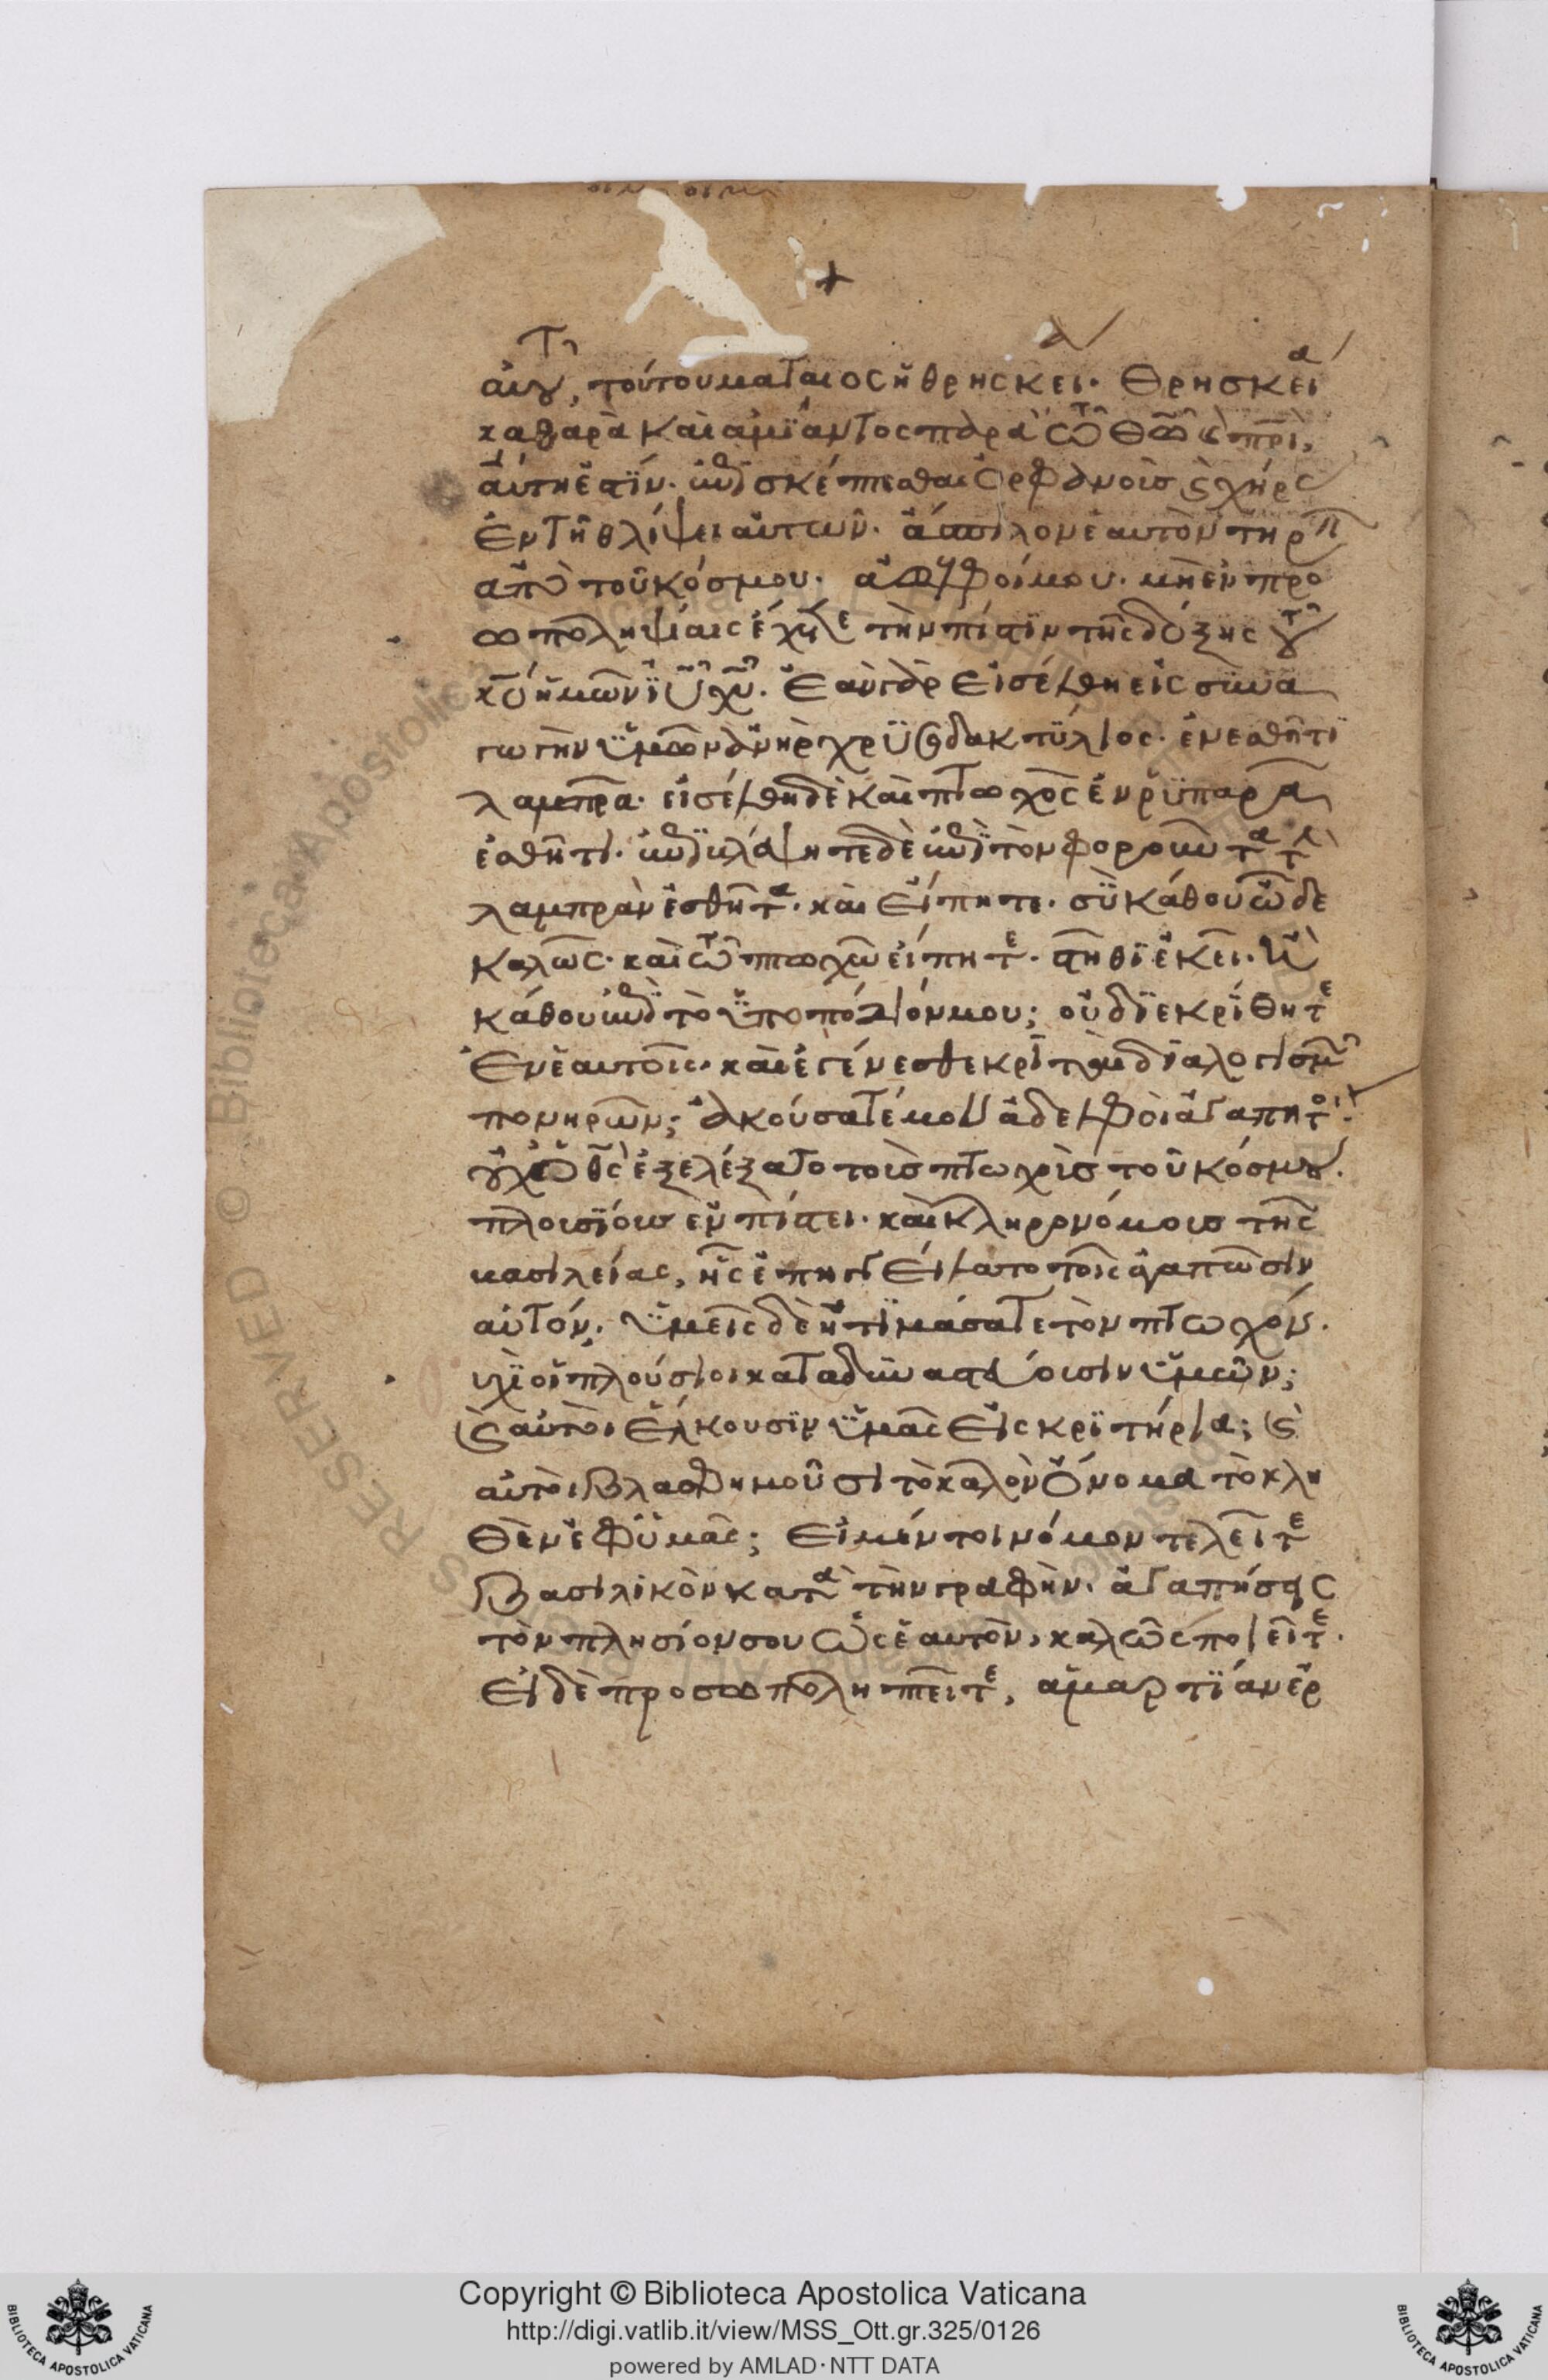 αυτου, τούτου μάταιος ἡ θρησκεία. Θρησκεία
καθαρὰ καὶ ἀμίαντος παρὰ τῶ θῶ καὶ πρὶ,
αὕτη ἐστίν. ἐπισκέπτεσθαι ὀρφανοὺς καὶ χήρας
ἐν τῆ θλίψει αὐτῶν. ἄσπιλον ἑαυτὸν τηρεῖν
ἀπὸ τοῦ κόσμου. ἀδελφοί μου. μὴ ἐν προ
σωποληψίαις ἔχετε τὴν πίστιν τῆς δόξης τοῦ
κυ ἡμῶν ιυ χυ. Ἐὰν γὰρ εἰσέλθη εἰς συνα
γωγὴν ὑμῶν ἀνὴρ χρυσοδακτύλιος. ἐν ἐσθῆτι
λαμπρα. εἰσέλθη δὲ καὶ πτωχὸς ἐν ρυπαρᾶ
ἐσθῆτι. ἐπιβλέψητε δὲ ἐπὶ τὸν φοροῦντα τὴν
λαμπρὰν ἐσθῆτα. καὶ εἴπητε. σὺ κάθου ὧδε
καλῶς. καὶ τῶ πτωχῶ εἴπητε. στῆθι ἐκεῖ. ἢ
κάθου ἐπὶ τὸ ὑποπόδιόν μου; οὐ διεκρίθητε
ἐν ἑαυτοῖς. καὶ ἐγένεσθε κριταὶ διαλογισμῶν
πονηρῶν; ἀκούσατέ μου ἀδελφοὶ ἀγαπητοί.
οὐχ ὁ θς ἐξελέξατο τοὺς πτωχοὺς τοῦ κόσμου.
πλουσίους ἐν πίστει. καὶ κληρονόμους τῆς
βασιλείας, ἧς ἐπηγγείλατο τοῖς ἀγαπῶσιν
αὐτόν. ὑμεῖς δὲ ἠτιμάσατε τὸν πτωχόν.
οὐχὶ οἱ πλούσιοι καταδυναστεύουσιν ὑμῶν;
καὶ αὐτοὶ ἕλκουσιν ὑμᾶς εἰς κριτήρια; καὶ
αὐτοὶ βλασφημοῦσι τὸ καλὸν ὄνομα τὸ κλη
θὲν ἐφ ὑμᾶς; Εἰ μέντοι νόμον τελεῖτε
βασιλικὸν κατὰ τὴν γραφὴν. ἀγαπήσεις
τὸν πλησίον σου ὡς ἑαυτὸν, καλῶς ποιεῖτε.
Εἰ δὲ προσωποληπτεῖτε, ἁμαρτίαν ἐρ
Copyright © Biblioteca Apostolica Vaticana
http://digi.vatlib.it/view/MSS_Ott.gr.325/0126
powered by AMLAD·NTT DATA